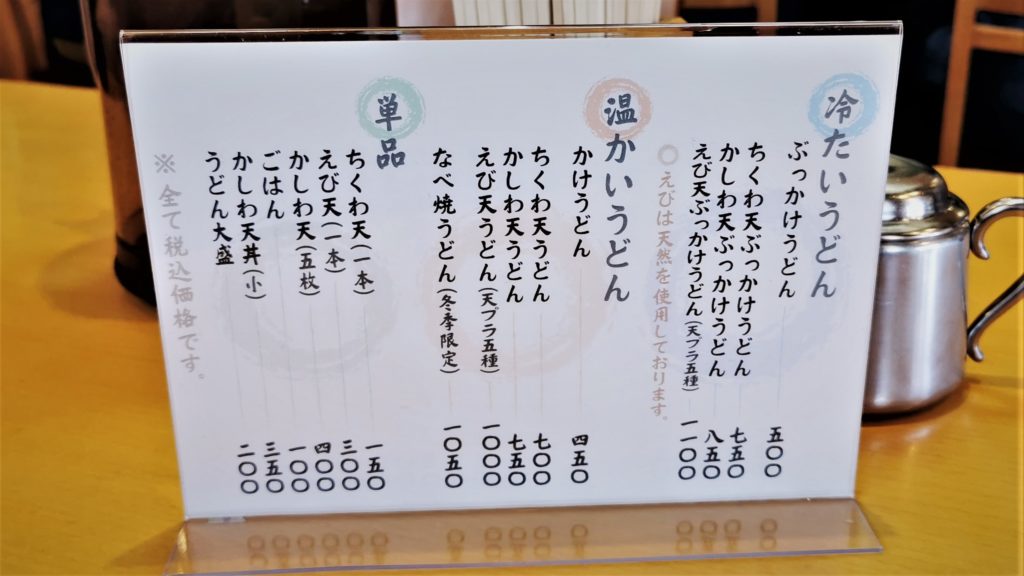 冷たいうどん
ぶっかけうどん 五〇〇
ちくわ天ぶっかけうどん 七五〇
かしわ天ぶっかけうどん 八五〇
えび天ぶっかけうどん(天プラ五種) 一一〇〇
〇えびは天然を使用しております。
温かいうどん
かけうどん 四五〇
ちくわ天うどん 七〇〇
かしわ天うどん 七五〇
えび天うどん(天プラ五種) 一〇〇〇
なべ焼うどん(冬季限定) 一〇五〇
単品
ちくわ天(一本) 一五〇
えび天(一本) 三〇〇
かしわ天(五枚) 四〇〇
ごはん 一〇〇
かしわ天丼(小) 三五〇
うどん大盛 二〇〇
※全て税込価格です。